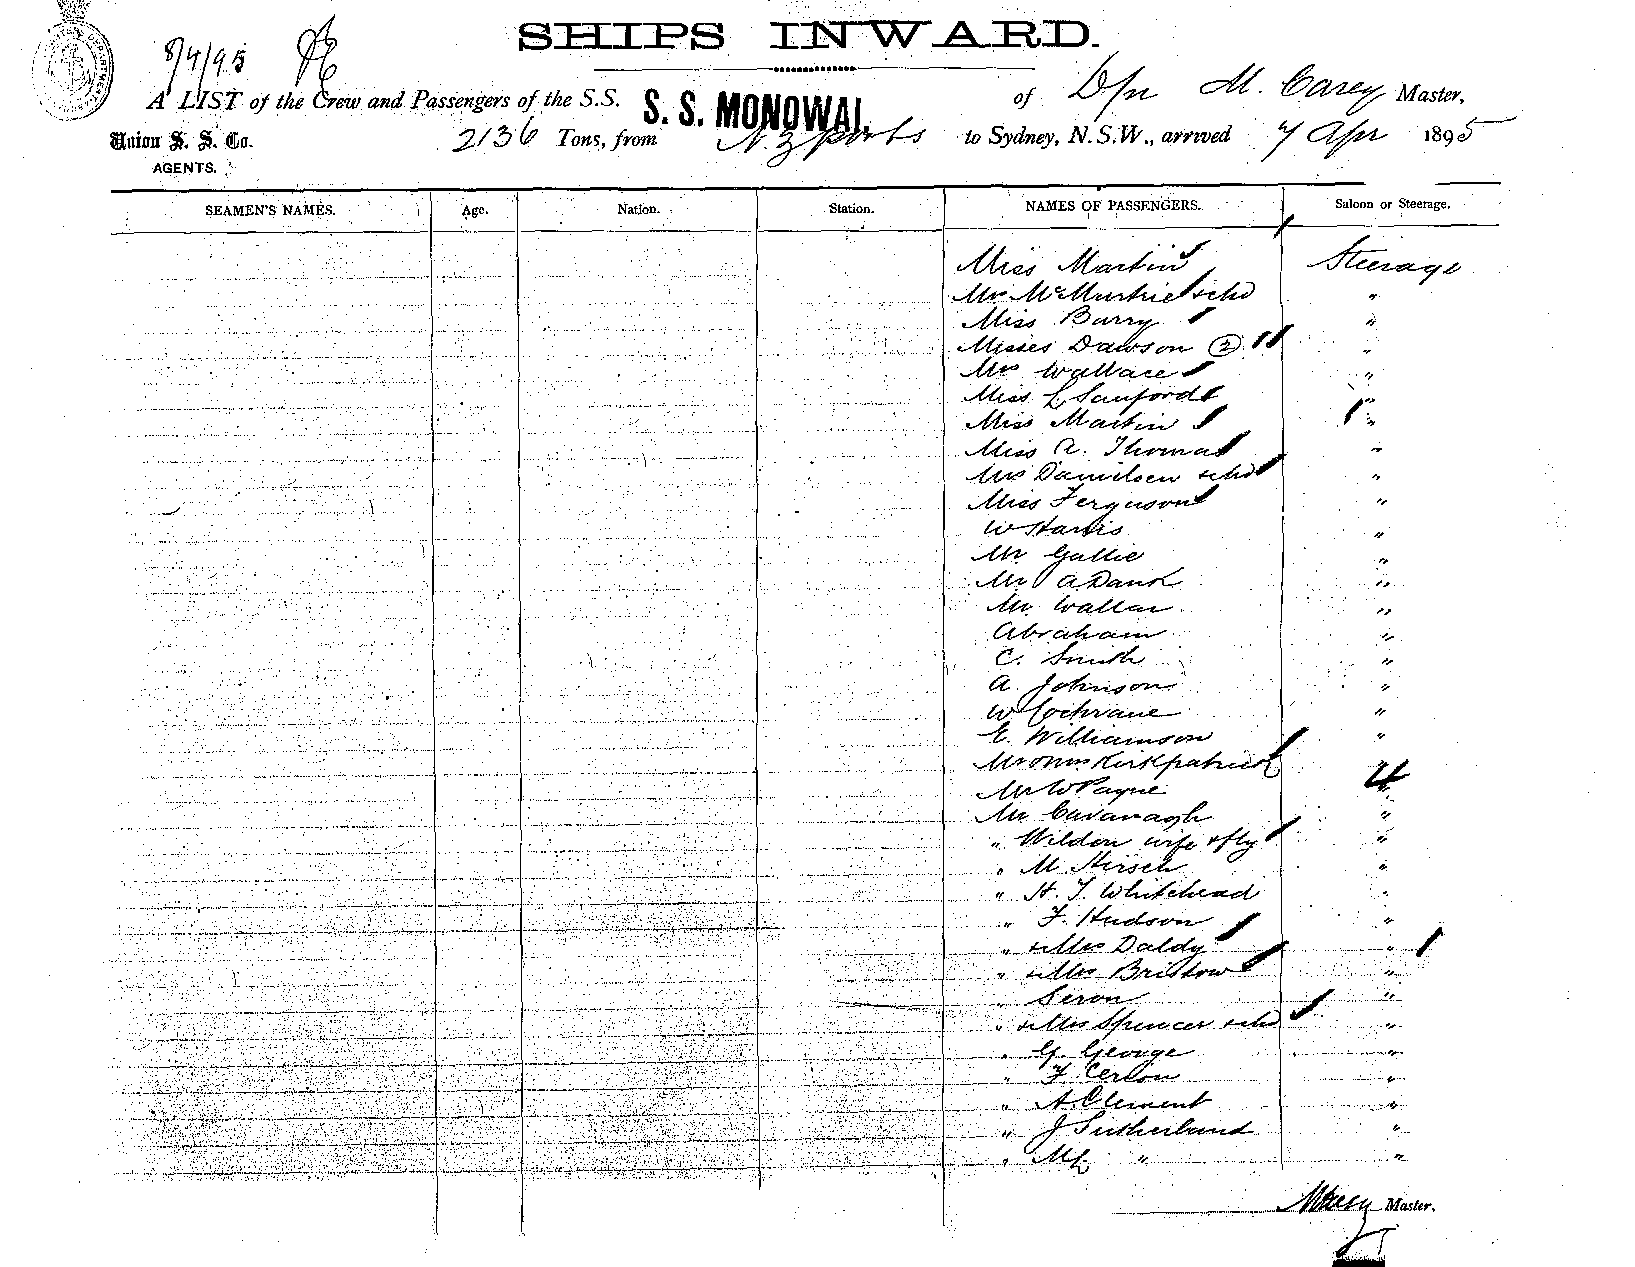 SHIPS INWARD.
8/4/95
A LIST of the Crew and Passengers of the S.S. S. S. MONOWAI. of Dn M. Carey Master,
Union S. S. Co. 2136 Tons, from N. Z ports to Sydney, N.S.W., arrived 7 Apr 1895
AGENTS.
SEAMEN'S NAMES. Age. Nation. Station. NAMES OF PASSENGERS. Saloon or Steerage.
Miss Martin Steerage
Mrs McMurtrie & chd "
Miss Barry "
Misses Dawson 2 "
Mrs Wallace "
Miss L Sanford "
Miss Martin "
Miss A. Thomas "
Mrs Danielsen & chd "
Miss Ferguson "
W Harris "
Mr Gallie "
Mr A Dank "
Mr Wallar "
Abraham "
C. Smith "
A Johnson "
W Cochrane "
E. Williamson "
Mr & Mrs Kirkpatrick
Mr W Payne "
Mr Cavanagh "
" Weldon wife & fly "
" M Hirsch "
" H. J. Whitehead "
" F. Hudson "
" & Mrs Daldy "
" & Mrs Bristow "
" Seron "
" & Mrs Spencer & chd "
" G. George "
" F Cerlon "
" A. Clement "
" J Sutherland "
" " "
MCarey Master.